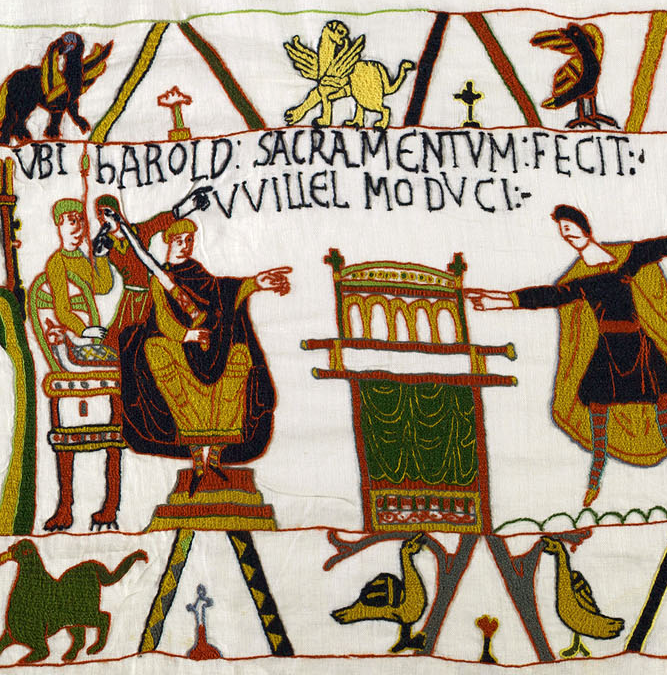 VBI hAROLD: SACRAMENTVM: FECIT:·
VVILLELMO DVCI:-